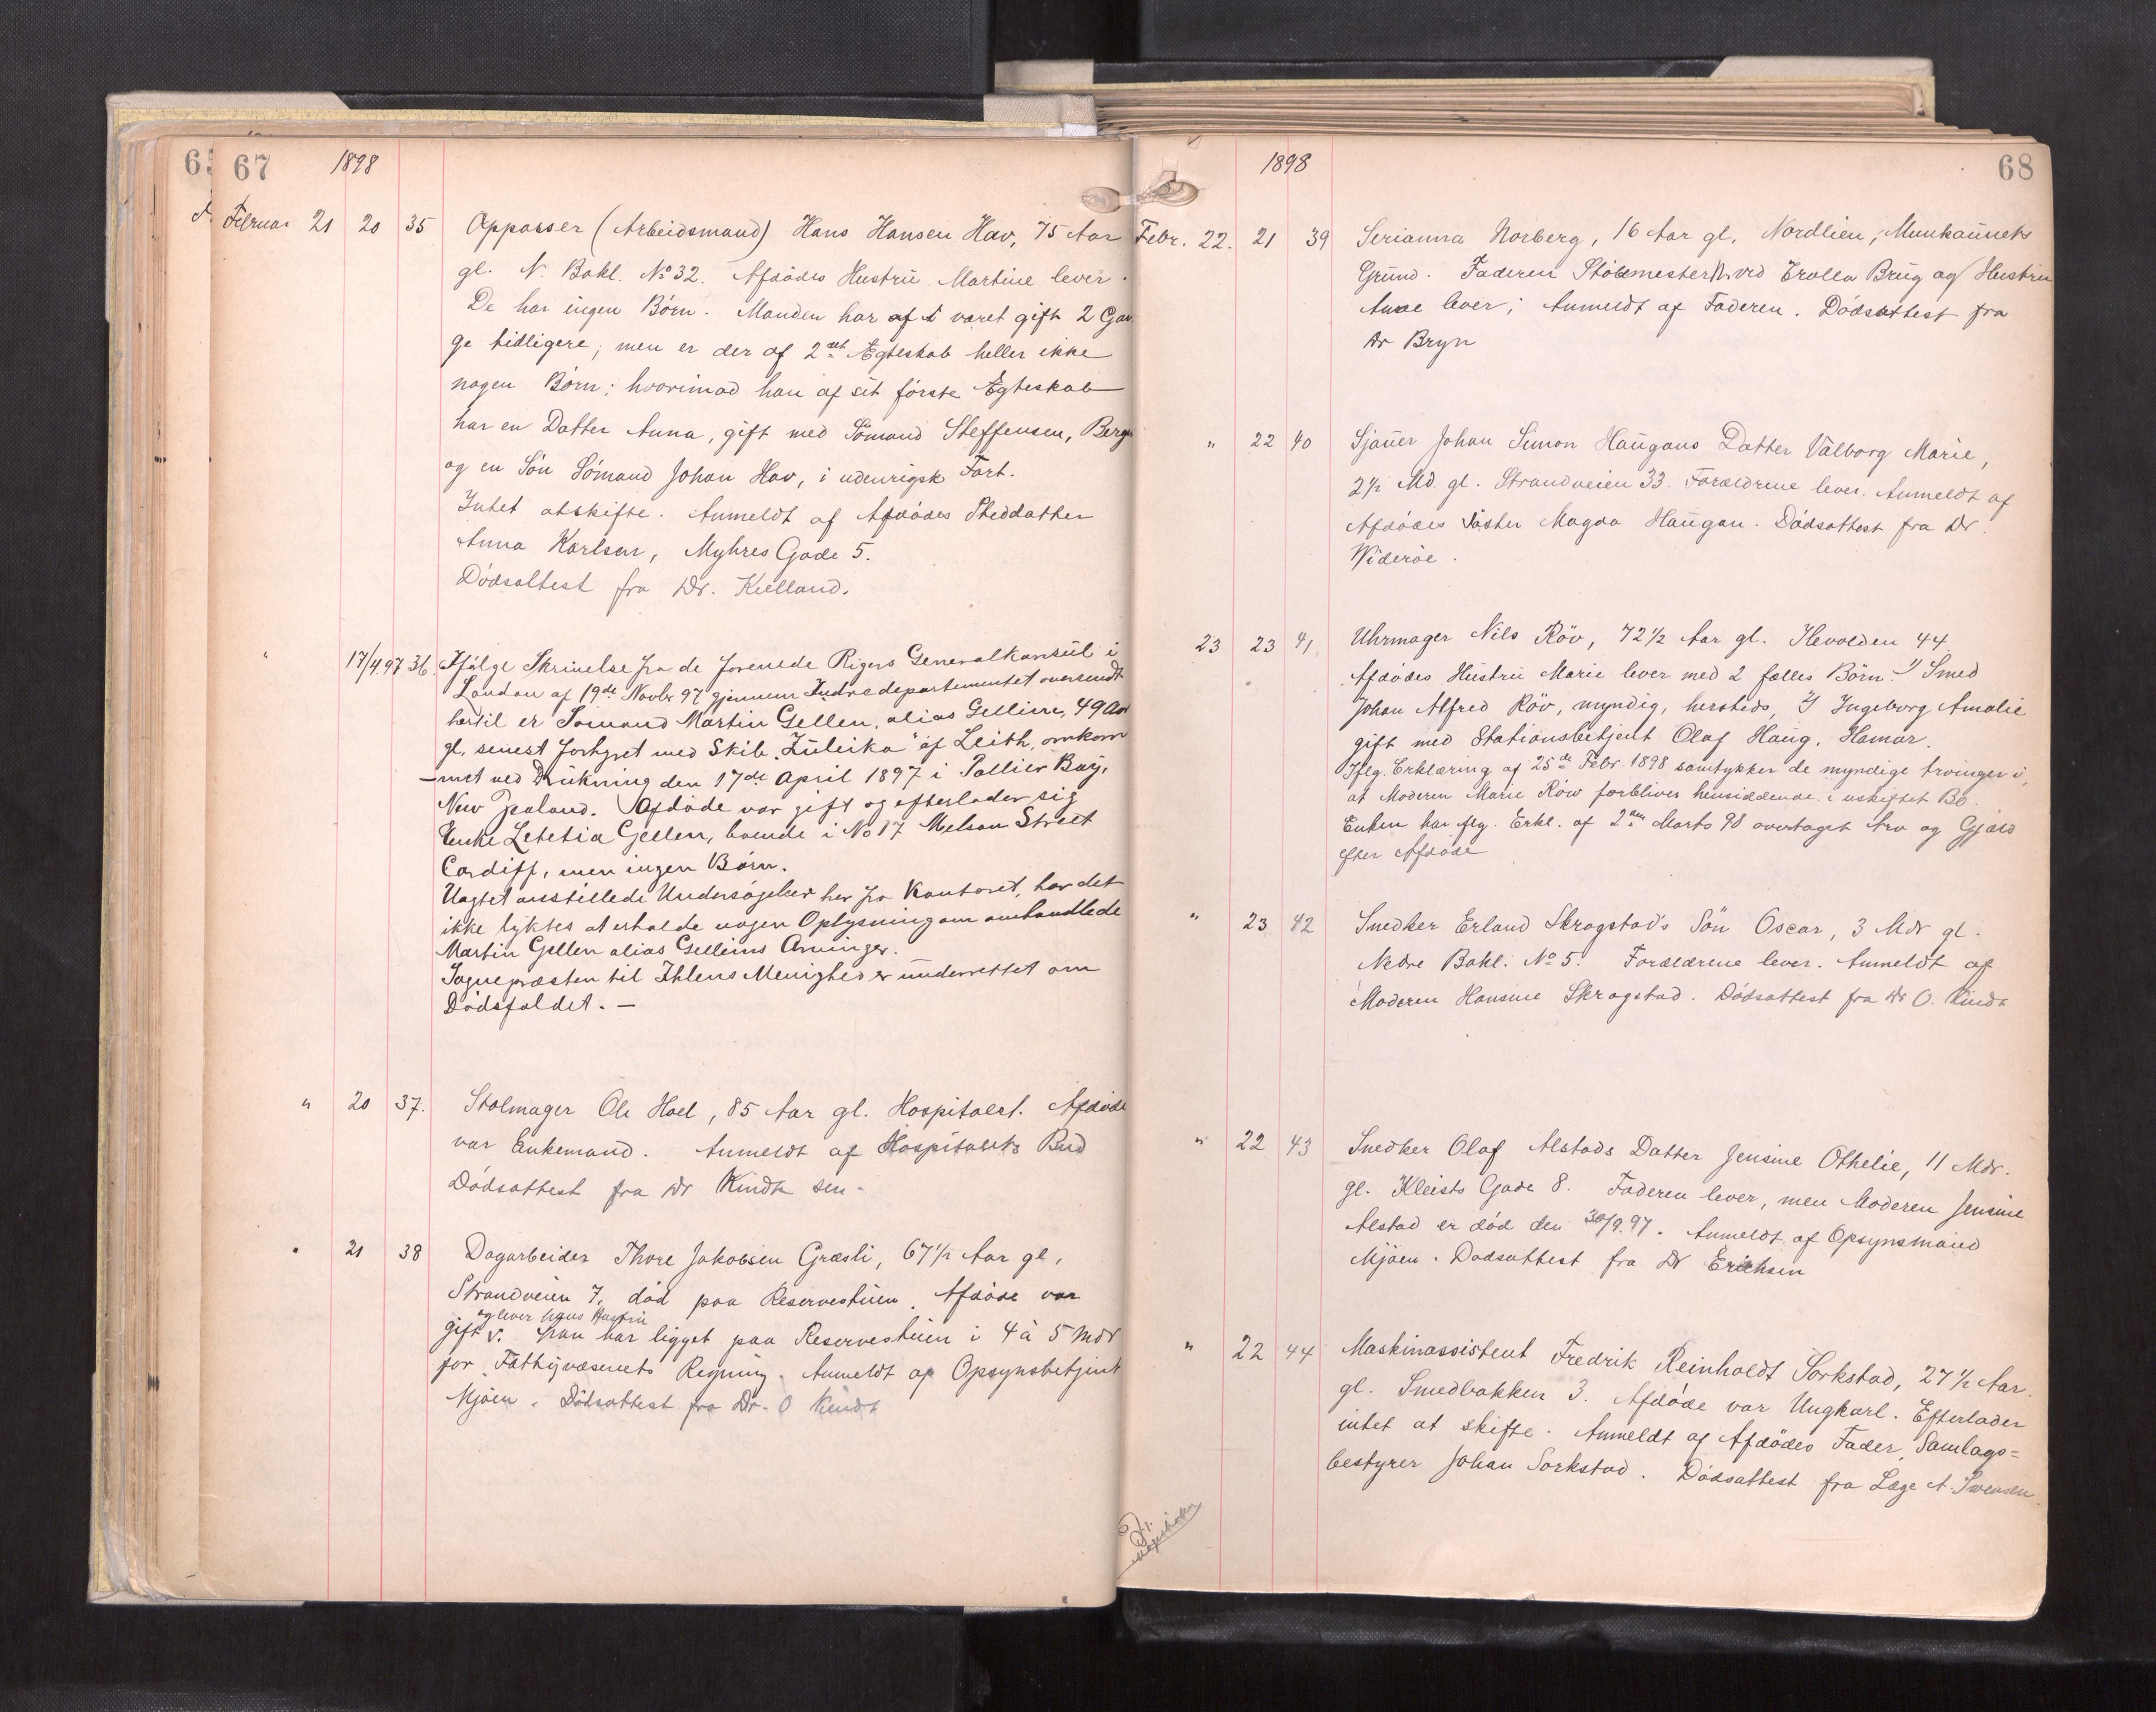 67 1898
Februar 21 20 35 Oppasser (Arbeidsmand) Hans Hansen Hav, 75 Aar
gl. N. Bakl. No 32. Afdödes Hustru Martine lever.
De har ingen Börn. Manden har været gift 2 Gan
ge tidligere, men er der af 2det Ægteskab heller ikke
nogen Börn; hvorimod han af sit förste Ægteskab
har en Datter Anna, gift med Sömand Steffensen, Bergen
og en Sön Sömand Johan Hav, i udenrigsk Fart.
Intet at skifte. Anmeldt af Afdödes Steddatter
Anna Karlsen, Myhres Gade 5.
Dödsattest fra Dr. Kielland.
" 17/4 97 36. Ifölge Skrivelse fra de forenede Rigers Generalkonsul i
London af 19de Novbr 97 gjennem Indredepartementet oversendt
hertil er Sömand Martin Gellen, alias Gellim, 49 Aar
gl, senest forhyret med Skib "Zuleika" af Leith, omkom
met ved Drukning den 17de April 1897 i Pallier Bay,
New Zealand. Afdöde var gift og efterlader sig
Enke Letetia Gellen, boende i No 17 Nelson Street
Cardiff, men ingen Börn.
Uagtet anstillede Undersögelser her fra Kontoret, har det
ikke lyktes at erholde nogen Oplysning om omhandlede
Martin Gellen alias Gellims Arvinger.
Sognepræsten til Ihlens Menighed er underrettet om
Dödsfaldet. —
" 20 37. Stolmager Ole Hoel, 85 Aar gl. Hospitalet. Afdöde
var Enkemand. Anmeldt af Hospitalets Bud
Dödsattest fra Dr Kindt sen.
" 21 38 Dagarbeider Thore Jakobsen Græsli, 67 1/2 Aar gl,
Strandveien 7, död paa Reservestuen. Afdöde var
og lever hans Hustru
gift v. Han har ligget paa Reservestuen i 4 à 5 Mdr
for Fattigvæsenets Regning. Anmeldt af Opsynsbetjent
Mjöen. Dödsattest fra Dr. O Kindt
1898 68
Febr. 22. 21 39 Serianna Norberg, 16 Aar gl, Nordlien, Munkaunets
Grund. Faderen Stöbemester N. ved Trolla Brug og Hustru
Anne lever; Anmeldt af Faderen. Dödsattest fra
Dr Bryn
" 22 40 Sjauer Johan Simon Haugans Datter Valborg Marie,
2 1/2 Md. gl. Strandveien 33. Forældrene lever. Anmeldt af
Afdödes Söster Magda Haugan. Dödsattest fra Dr.
Wideröe.
23 23 41 Uhrmager Nils Röv, 72 1/2 Aar gl. Ilevolden 44
Afdödes Hustru Marie lever med 2 fælles Börn: 1) Smed
Johan Alfred Röv, myndig, hersteds, 2) Ingeborg Amalie
gift med Stationsbetjent Olaf Haug, Hamar.
Iflg. Erklæring af 25de Febr. 1898 samtykker de myndige Arvinger i,
at Moderen Marie Röv forbliver hensiddende i uskiftet Bo.
Enken har flg. Erkl. af 2den Marts 98 overtaget Arv og Gjæld
efter Afdöde
" 23 42 Snedker Erland Skrogstad's Sön Oscar, 3 Mdr gl.
Nedre Bakl. No 5. Forældrene lever. Anmeldt af
Moderen Hansine Skrogstad. Dödsattest fra Dr O. Kindt
" 22 43 Snedker Olaf Alstads Datter Jensine Othelie, 11 Mdr.
gl. Kleists Gade 8. Faderen lever, men Moderen Jensine
Alstad er död den 30/9.97. Anmeldt af Opsynsmand
Mjöen. Dödsattest fra Dr Erichsen
" 22 44 Maskinassistent Fredrik Reinholdt Sorkstad, 27 1/2 Aar
gl. Smedbakken 3. Afdöde var Ungkarl. Efterlader
intet at skifte. Anmeldt af Afdödes Fader, Samlags=
bestyrer Johan Sorkstad. Dödsattest fra Læge A. Svensen.